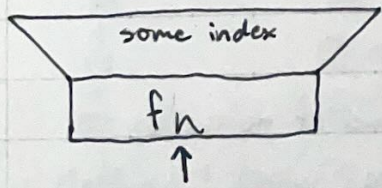 some index
fn
↑